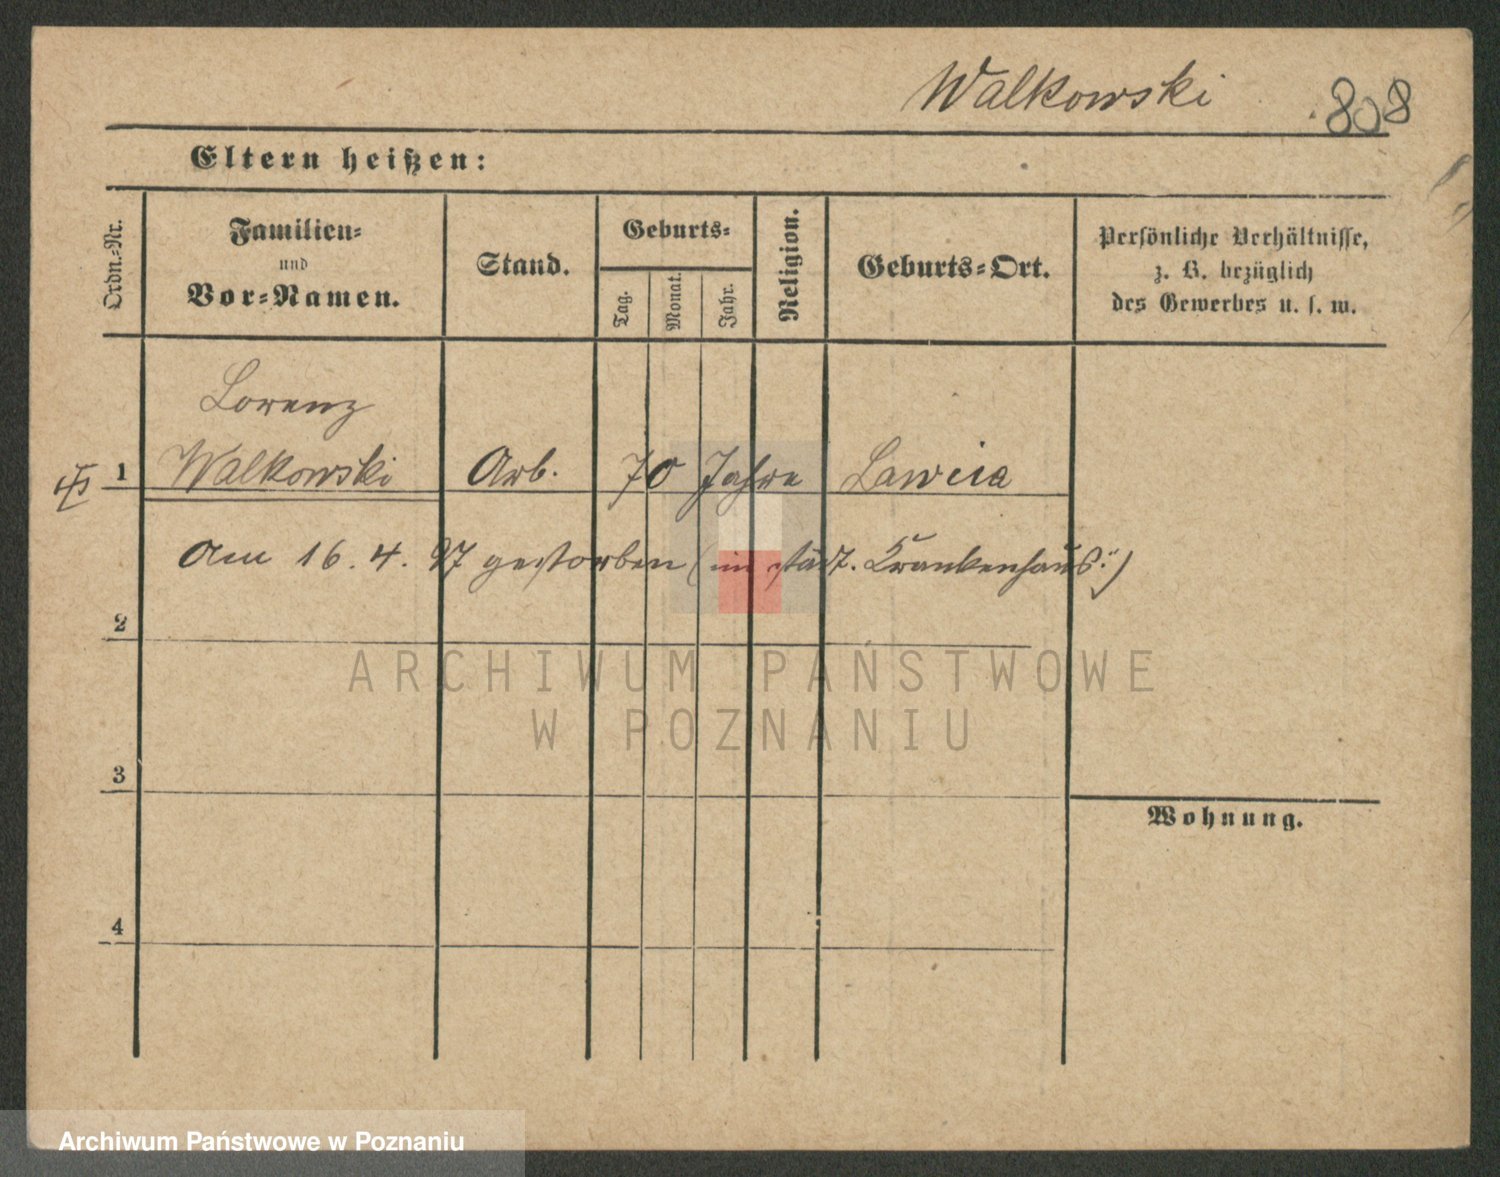 Walkowski 808
Eltern heißen:
Ordn.-Nr.
Familien-
und
Vor-Namen.
Stand.
Geburts-
Tag.
Monat.
Jahr.
Religion.
Geburts-Ort.
Persönliche Verhältnisse,
z. B. bezüglich
des Gewerbes u. s. w.
Lorenz
1 Walkowski Arb. 70 Jahre Lawica
Am 16. 4. 97 gestorben (im städt. Krankenhaus.)
2
ARCHIWUM PAŃSTWOWE
W POZNANIU
3
Wohnung.
4
Archiwum Państwowe w Poznaniu